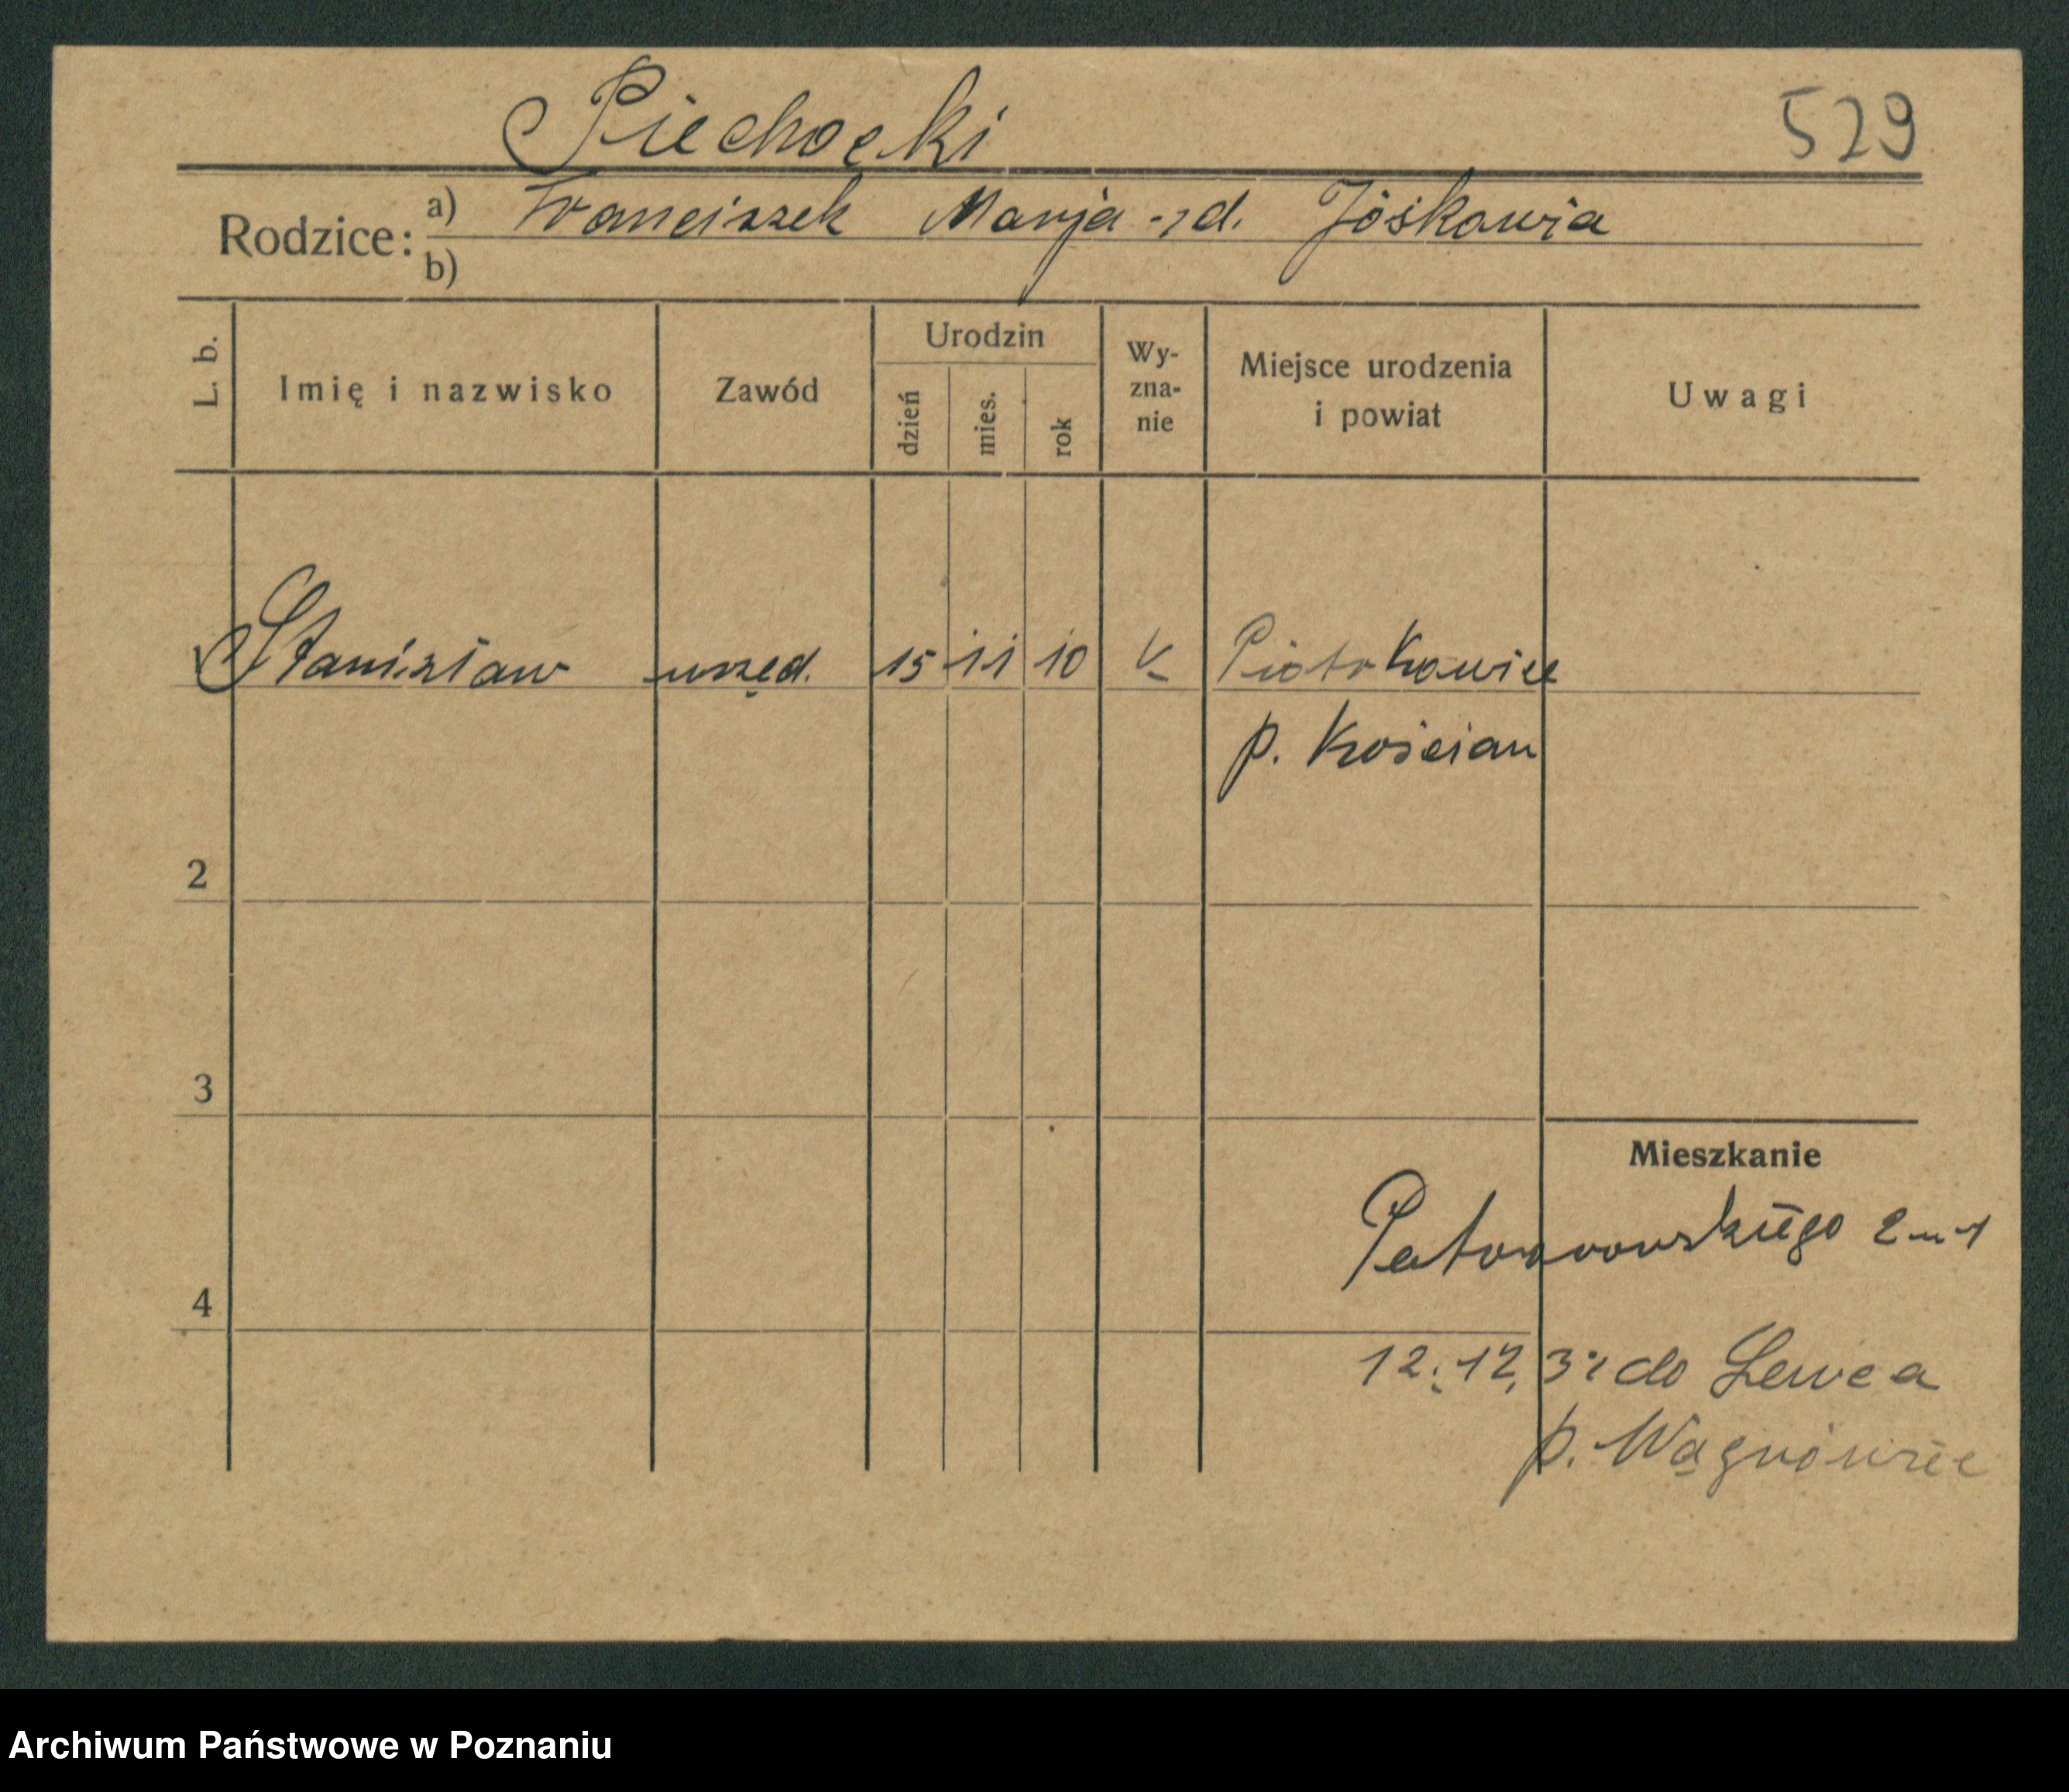 Piechocki 529
Rodzice: a) Franciszek Marja - zd. Jóśkowia
b)
L. b. Imię i nazwisko Zawód Urodzin dzień mies. rok Wy-zna-nie Miejsce urodzenia i powiat Uwagi
Stanisław urzęd. 15 11 10 k Piotrkowice
p. Kościan
2
3
Mieszkanie
2 m 1
4
12.12. do
p. Wągrówiec
Archiwum Państwowe w Poznaniu